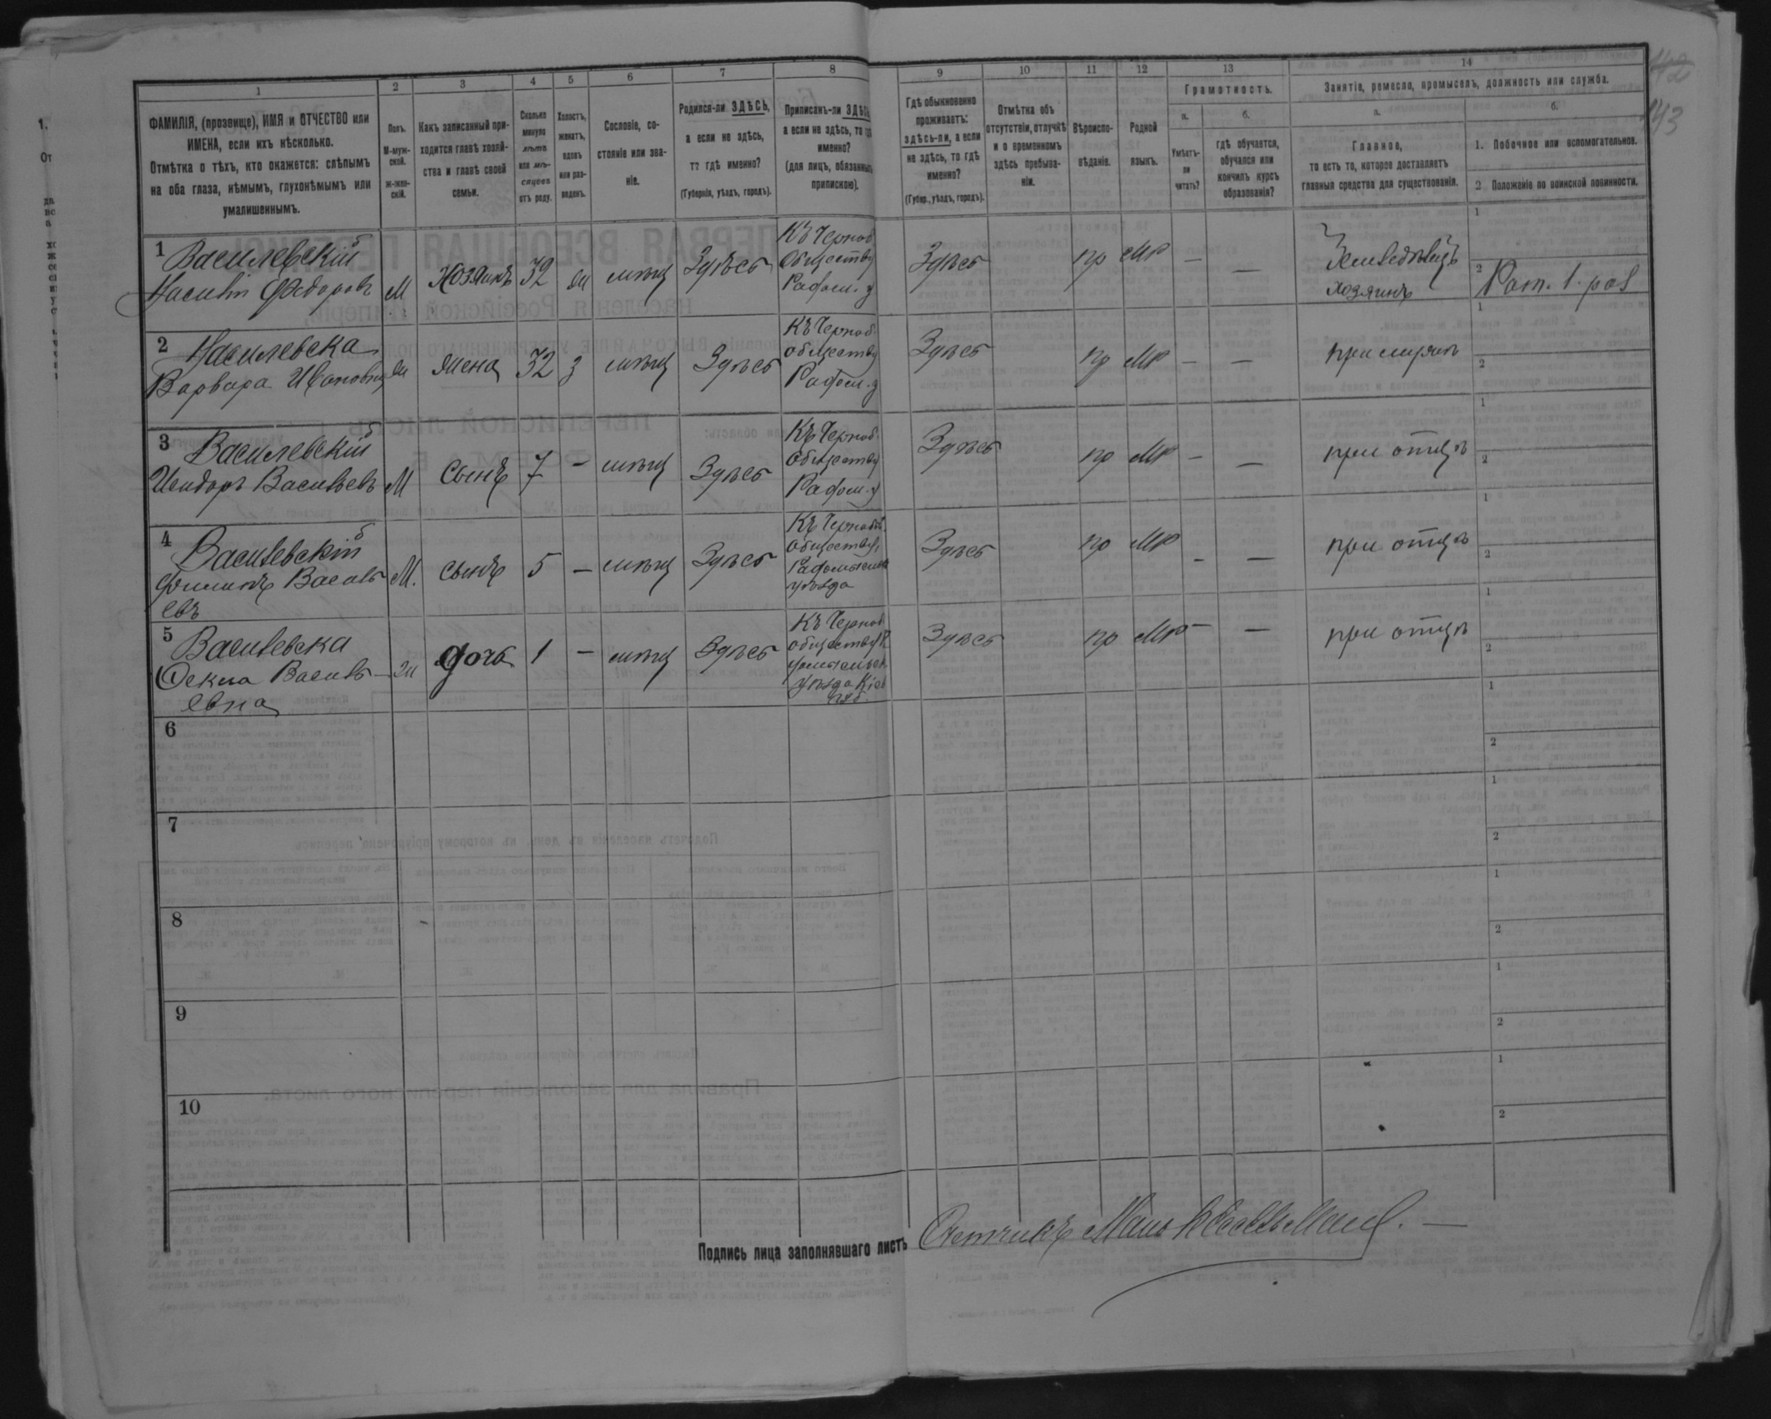 42
143
1 2 3 4 5 6 7 8 9 10 11 12 13 14
ФАМИЛІЯ, (прозвище), ИМЯ и ОТЧЕСТВО или
ИМЕНА, если ихъ нѣсколько.
Отмѣтка о тѣхъ, кто окажется: слѣпымъ
на оба глаза, нѣмымъ, глухонѣмымъ или
умалишеннымъ.
Полъ.
М-муж-
ской.
ж-жен-
скій.
Какъ записанный при-
ходится главѣ хозяй-
ства и главѣ своей
семьи.
Сколько
минуло
лѣтъ
или мѣ-
сяцевъ
отъ роду.
Холостъ,
женатъ,
вдовъ
или раз-
веденъ.
Сословіе, со-
стояніе или зва-
ніе.
Родился-ли ЗДѢСЬ,
а если не здѣсь,
то гдѣ именно?
(Губернія, уѣздъ, городъ).
Приписанъ-ли ЗДѢСЬ,
а если не здѣсь, то гдѣ
именно?
(для лицъ, обязанныхъ
припискою).
Гдѣ обыкновенно
проживаетъ:
здѣсь-ли, а если
не здѣсь, то гдѣ
именно?
(Губер., уѣздъ, городъ).
Отмѣтка объ
отсутствіи, отлучкѣ
и о временномъ
здѣсь пребыва-
ніи.
Вѣроиспо-
вѣданіе.
Родной
языкъ.
Грамотность.
а.
Умѣетъ-
ли
читать?
б.
гдѣ обучается,
обучался или
кончилъ курсъ
образованія?
Занятіе, ремесло, промыселъ, должность или служба.
а.
Главное,
то есть то, которое доставляетъ
главныя средства для существованія.
б.
1. Побочное или вспомогательное.
2 Положеніе по воинской повинности.
1 Василевскій
Василій Федоровъ М Хозяинъ 32 ж мѣщ Здѣсь
Къ Черноб
Обществу
Радом. у
Здѣсь пр Мр — —
Земледѣлецъ
хозяинъ
1
2 Рат. 1 раз
2 Василевска
Варвара Ивановна ж жена 32 з мѣщ Здѣсь
Къ Черноб
обществу
Радом. у
Здѣсь пр Мр — — при мужѣ
1
2
3 Василевскій
Исидоръ Васильевъ М Сынъ 7 — мѣщ Здѣсь
Къ Черноб
обществу
Радом. у
Здѣсь пр Мр — — при отцѣ
1
2
4 Василевскій
Филипъ Василь
евъ М. сынъ 5 — мѣщ Здѣсь
Къ Черноб
обществу,
уѣзда
Здѣсь пр Мр — — при отцѣ
1
2
5 Василевска
Василь-
евна ж дочь 1 — мѣщ Здѣсь
Къ Черноб
обществу
уѣзда Кіев
губ
Здѣсь пр Мр — — при отцѣ
1
2
6
1
2
7
1
2
8
1
2
9
1
2
10
1
2
Подпись лица заполнявшаго листъ Счетчикъ